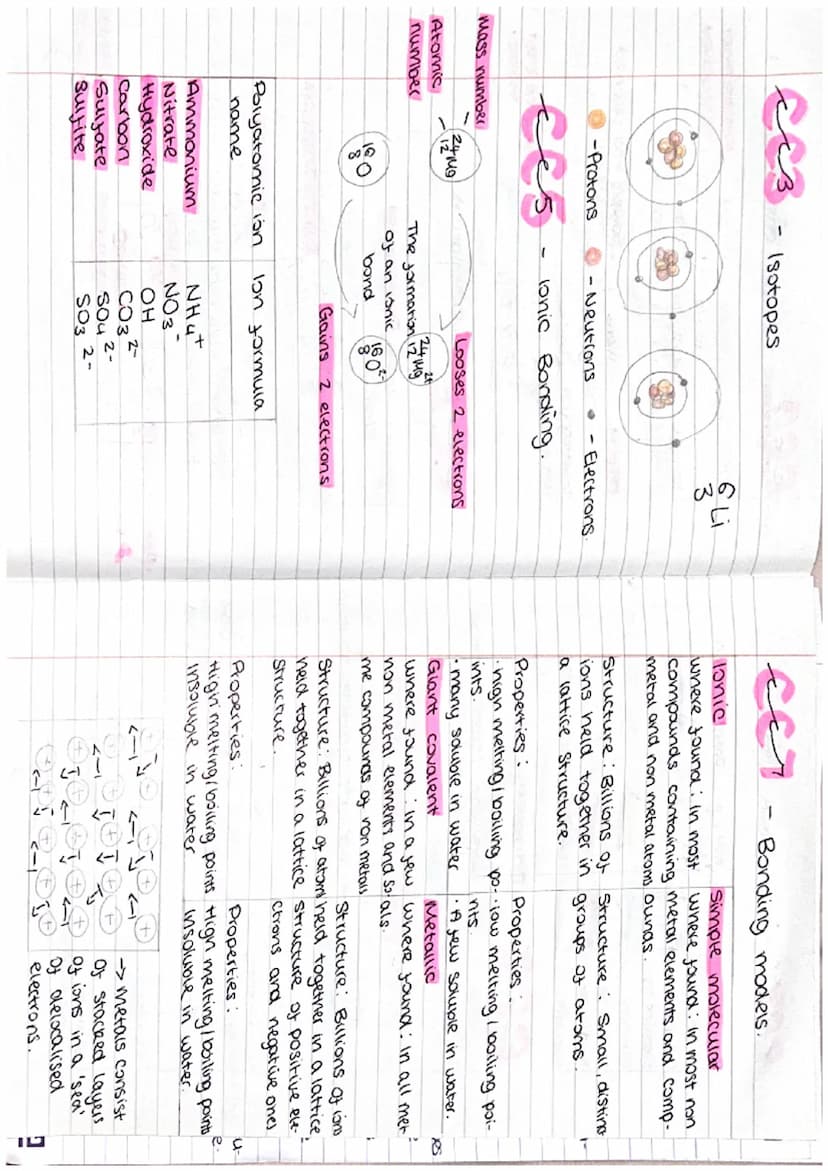 CC3 - Isotopes
6
3 Li
- Protons - Neutrons - Electrons.
CC5 - Ionic Bonding.
Mass number
Atomic
number
24
12 Mg
Looses 2 electrons
24 2+
12 Mg
The formation
of an ionic
bond
16
8 O
16 2-
8 O
Gains 2 electrons
Polyatomic ion
name
Ion formula
Ammonium NH4+
Nitrate NO3-
Hydroxide OH
Carbon CO3 2-
Sulfate SO4 2-
Sulfite SO3 2-
CC7 - Bonding models.
Ionic
where found: In most
compounds containing
metal and non metal atoms
Structure: Billions of
ions held together in
a lattice structure.
Properties:
· high melting/boiling po-
ints.
· many soluble in water
Simple molecular
where found: In most non
metal elements and comp-
ounds.
Structure: Small, distinct
groups of atoms.
Properties:
· low melting/boiling poi-
nts.
· A few soluble in water.
Giant covalent
where found: In a few
non metal elements and so
me compounds of non metals
Structure: Billions of atoms
held together in a lattice
structure.
Properties:
High melting/boiling points
Insoluble in water
Metallic
where found: in all met-
als.
Structure: Billions of ions
held together in a lattice
structure of positive ele-
ctrons and negative ones
Properties:
High melting/boiling points
insoluble in water.
→ Metals consist
of stacked layers
of ions in a 'sea'
of delocalised
electrons.